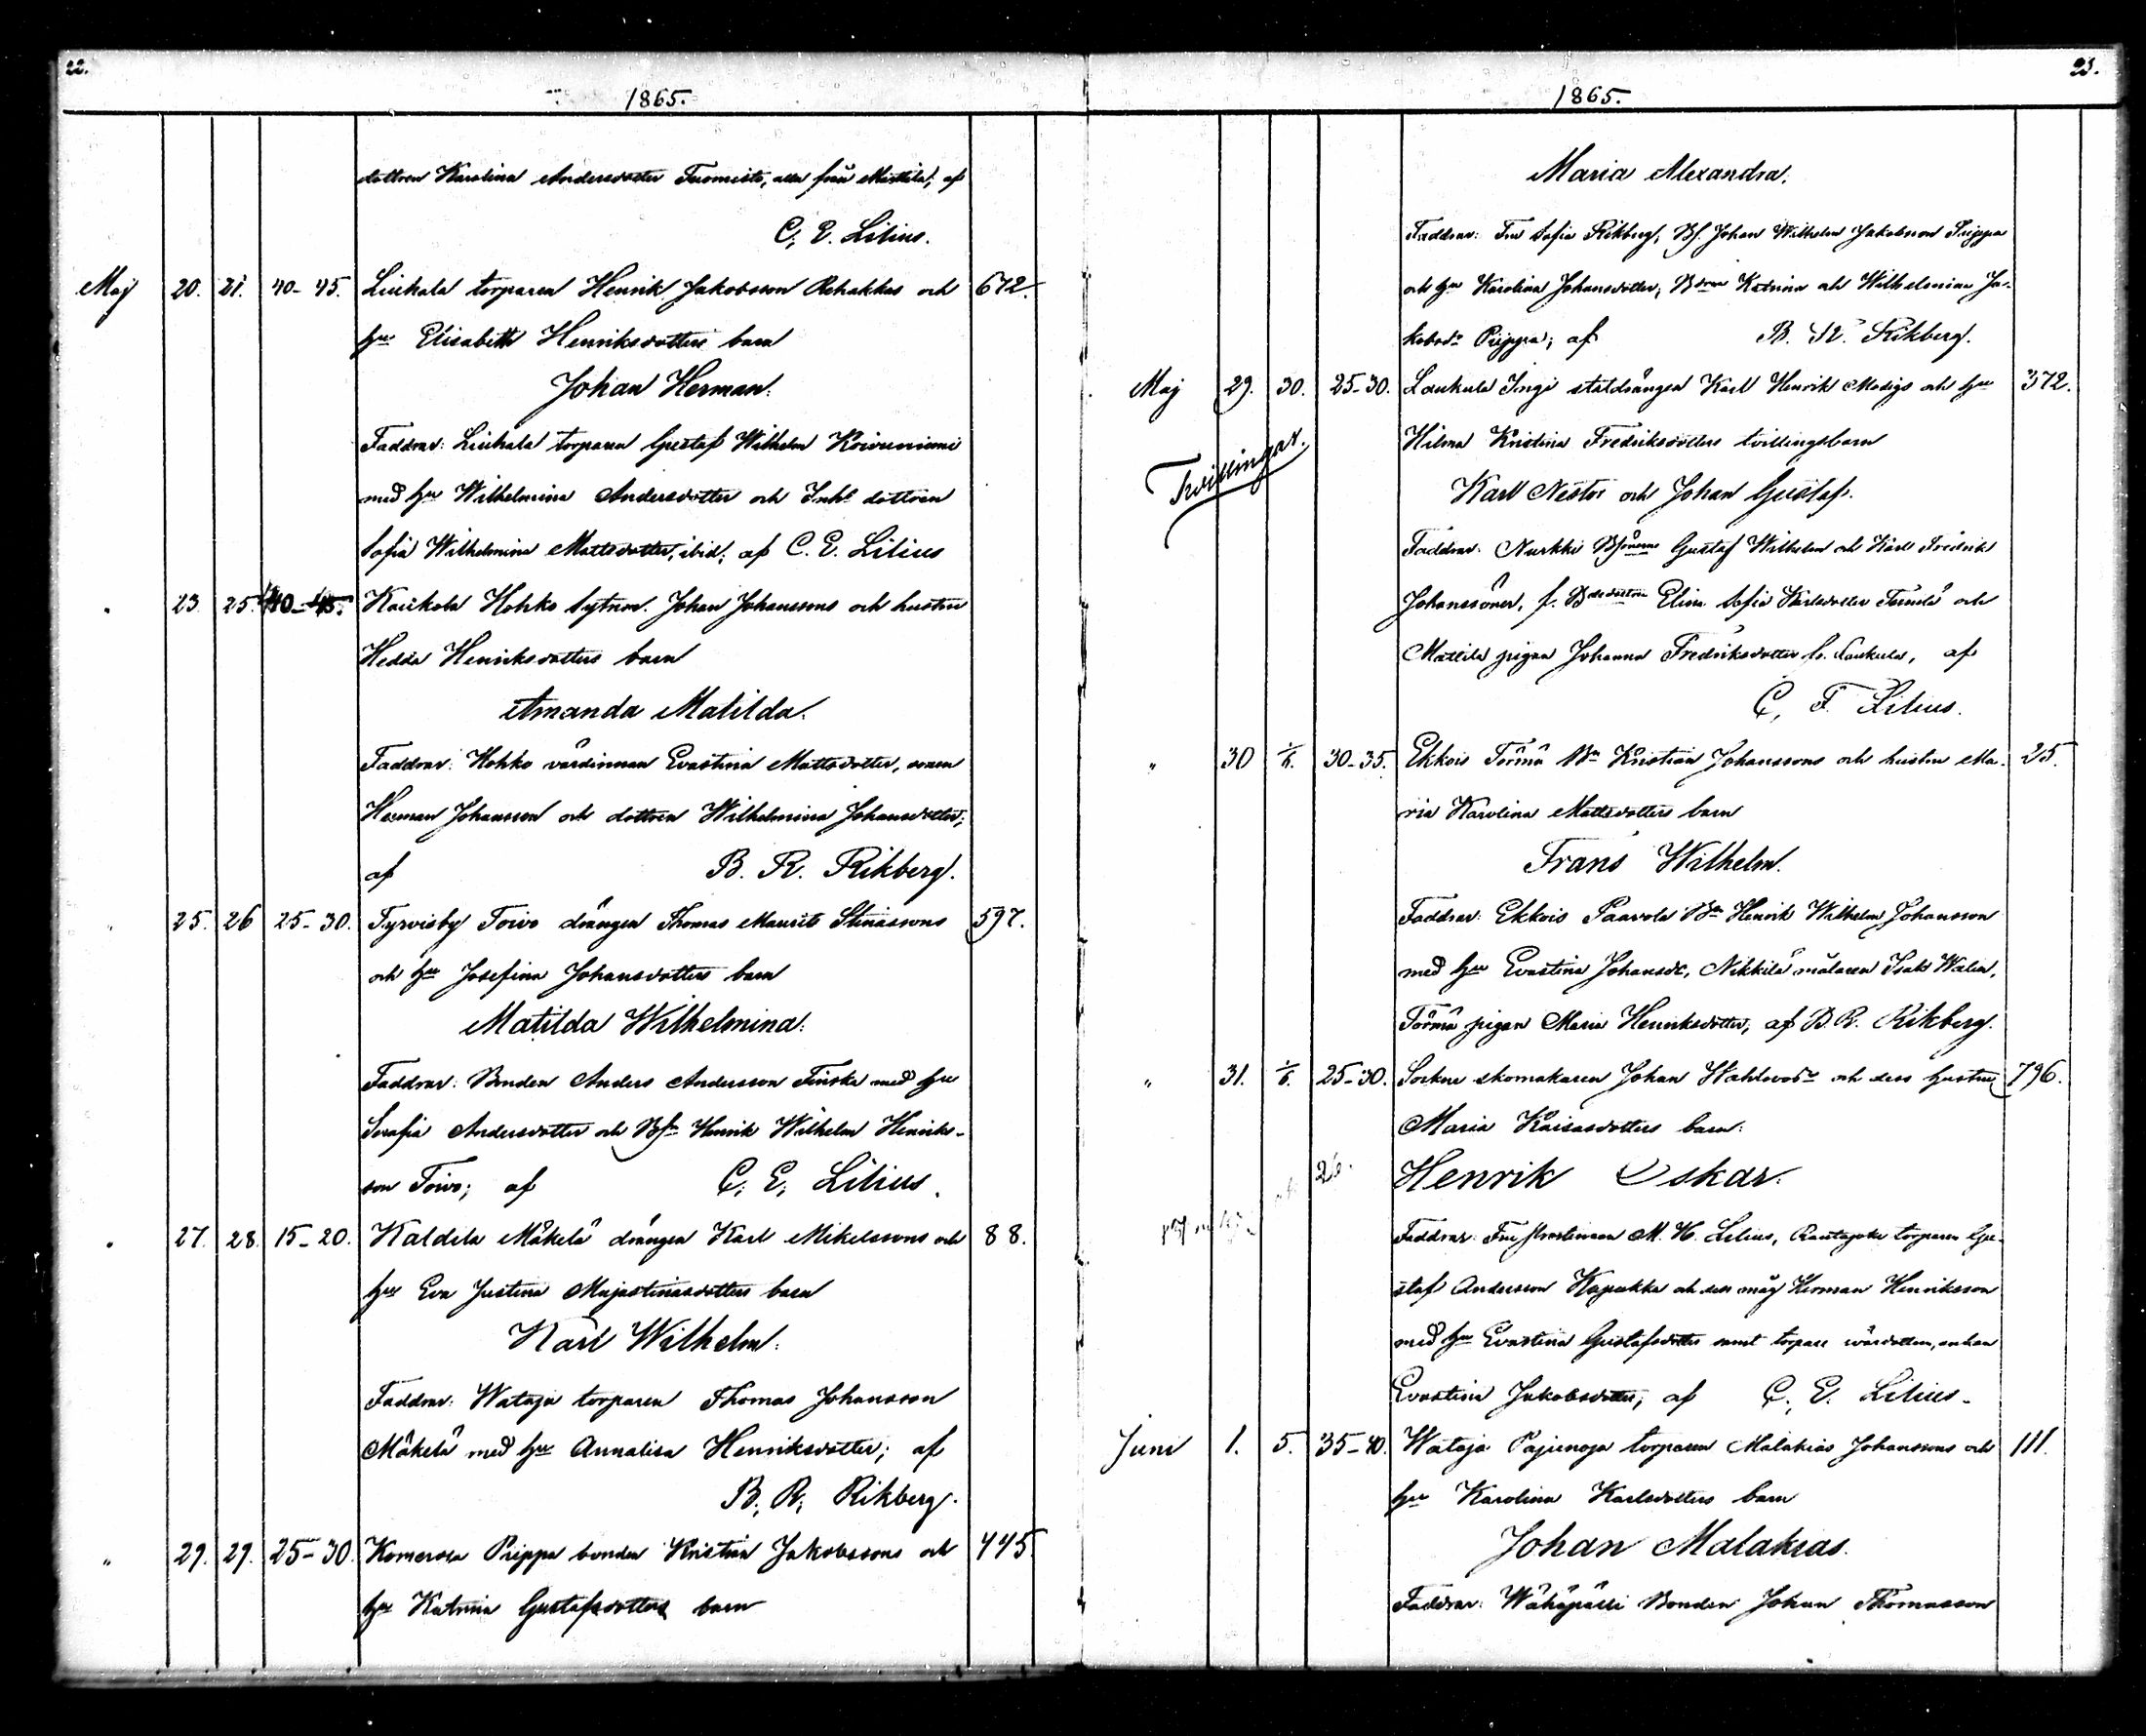 22.
1865.
dottren Karolina Andersdotter Tuomisto, alla från Mattila, af
C. E. Lilius.
Maj 20. 21. 40-45. Liukala torparen Henrik Jakobsson Rehakkas och 672.
hu Elisabeth Henriksdotters barn
Johan Herman.
Faddrar: Liukala torparen Gustaf Wilhelm Koivuniemi
med hu Wilhelmina Andersdotter och Inh. dottren
Sofia Wilhelmina Mattsdotter, ibid; af C. E. Lilius
" 23. 25. 40-45. Kaukola Hohko Sytn. Johan Johanssons och hustru
Hedda Henriksdotters barn
Amanda Matilda.
Faddrar: Hohko värdinnan Evastina Mattsdotter, sonen
Herman Johansson och dottren Wilhelmina Johansdotter;
af B. R. Rikberg.
" 25. 26 25-30. Tyrvisby Toivo drängen Thomas Maurits Stinassons 597.
och hu Josefina Johansdotters barn
Matilda Wilhelmina.
Faddrar: Bonden Anders Andersson Finska med hu
Serafia Andersdotter och Bsn Henrik Wilhelm Henriks-
son Toivo; af C. E. Lilius.
" 27. 28. 15-20. Kaldila Mäkelä drängen Karl Mikelssons och 88.
hu Eva Justina Majastinasdotters barn
Karl Wilhelm.
Faddrar: Wataja torparen Thomas Johansson
Mäkelä med hu Annalisa Henriksdotter; af
B. R. Rikberg.
" 29. 29. 25-30 Komeroja Prippa bonden Kristian Jakobssons och 445.
hu Katrina Gustafsdotters barn
23.
1865.
Maria Alexandra.
Faddrar: Fru Sofia Rikberg, Bs. Johan Wilhelm Jakobsson Prippa
och hu Karolina Johansdotter, Katrina och Wilhelmina Ja-
kobsdr Prippa; af B. R. Rikberg.
Maj 29. 30. 25-30. Laukula Ingi statdrängen Karl Henrik Modigs och hu 372.
Tvillingar.
Hilma Kristina Fredriksdotters tvillingsbarn
Karl Nestor och Johan Gustaf.
Faddrar: Nurkki Bsönerne Gustaf Wilhelm och Karl Fredrik
Johanssöner, f. Bdedottren Elina Sofia Karlsdotter och
Mattila pigan Johanna Fredriksdotter fr. Laukula, af
C. F. Lilius.
" 30 1/6. 30-35. Ekkois Törmä Bn Kristian Johanssons och hustru Ma- 25.
ria Karolina Mattsdotters barn
Frans Wilhelm.
Faddrar: Ekkois Paavola Bn Henrik Wilhelm Johansson
med hu Evastina Johansdr, Nikkilä målaren Isak Walen,
Törmä pigan Maria Henriksdotter, af B. R. Rikberg.
" 31. 1/6. 25-30. Sockne skomakaren Johan och dess hustru 796.
Maria Kaisasdotters barn.
26. Henrik Oskar.
Faddrar: Fru Prostinnan M. H. Lilius, Rautajoki torparen Gu-
staf Andersson Kapakka och dess måg Herman Henriksson
med hu Evastina Gustafsdotter samt torpare enkan
Evastina Jakobsdotter; af C. E. Lilius.
Juni 1. 5. 35-40. Wataja Pajunoja torparen Malakias Johanssons och 111.
hu Karolina Karlsdotters barn
Johan Malakias.
Faddrar: Wähäpälli Bonden Johan Thomasson